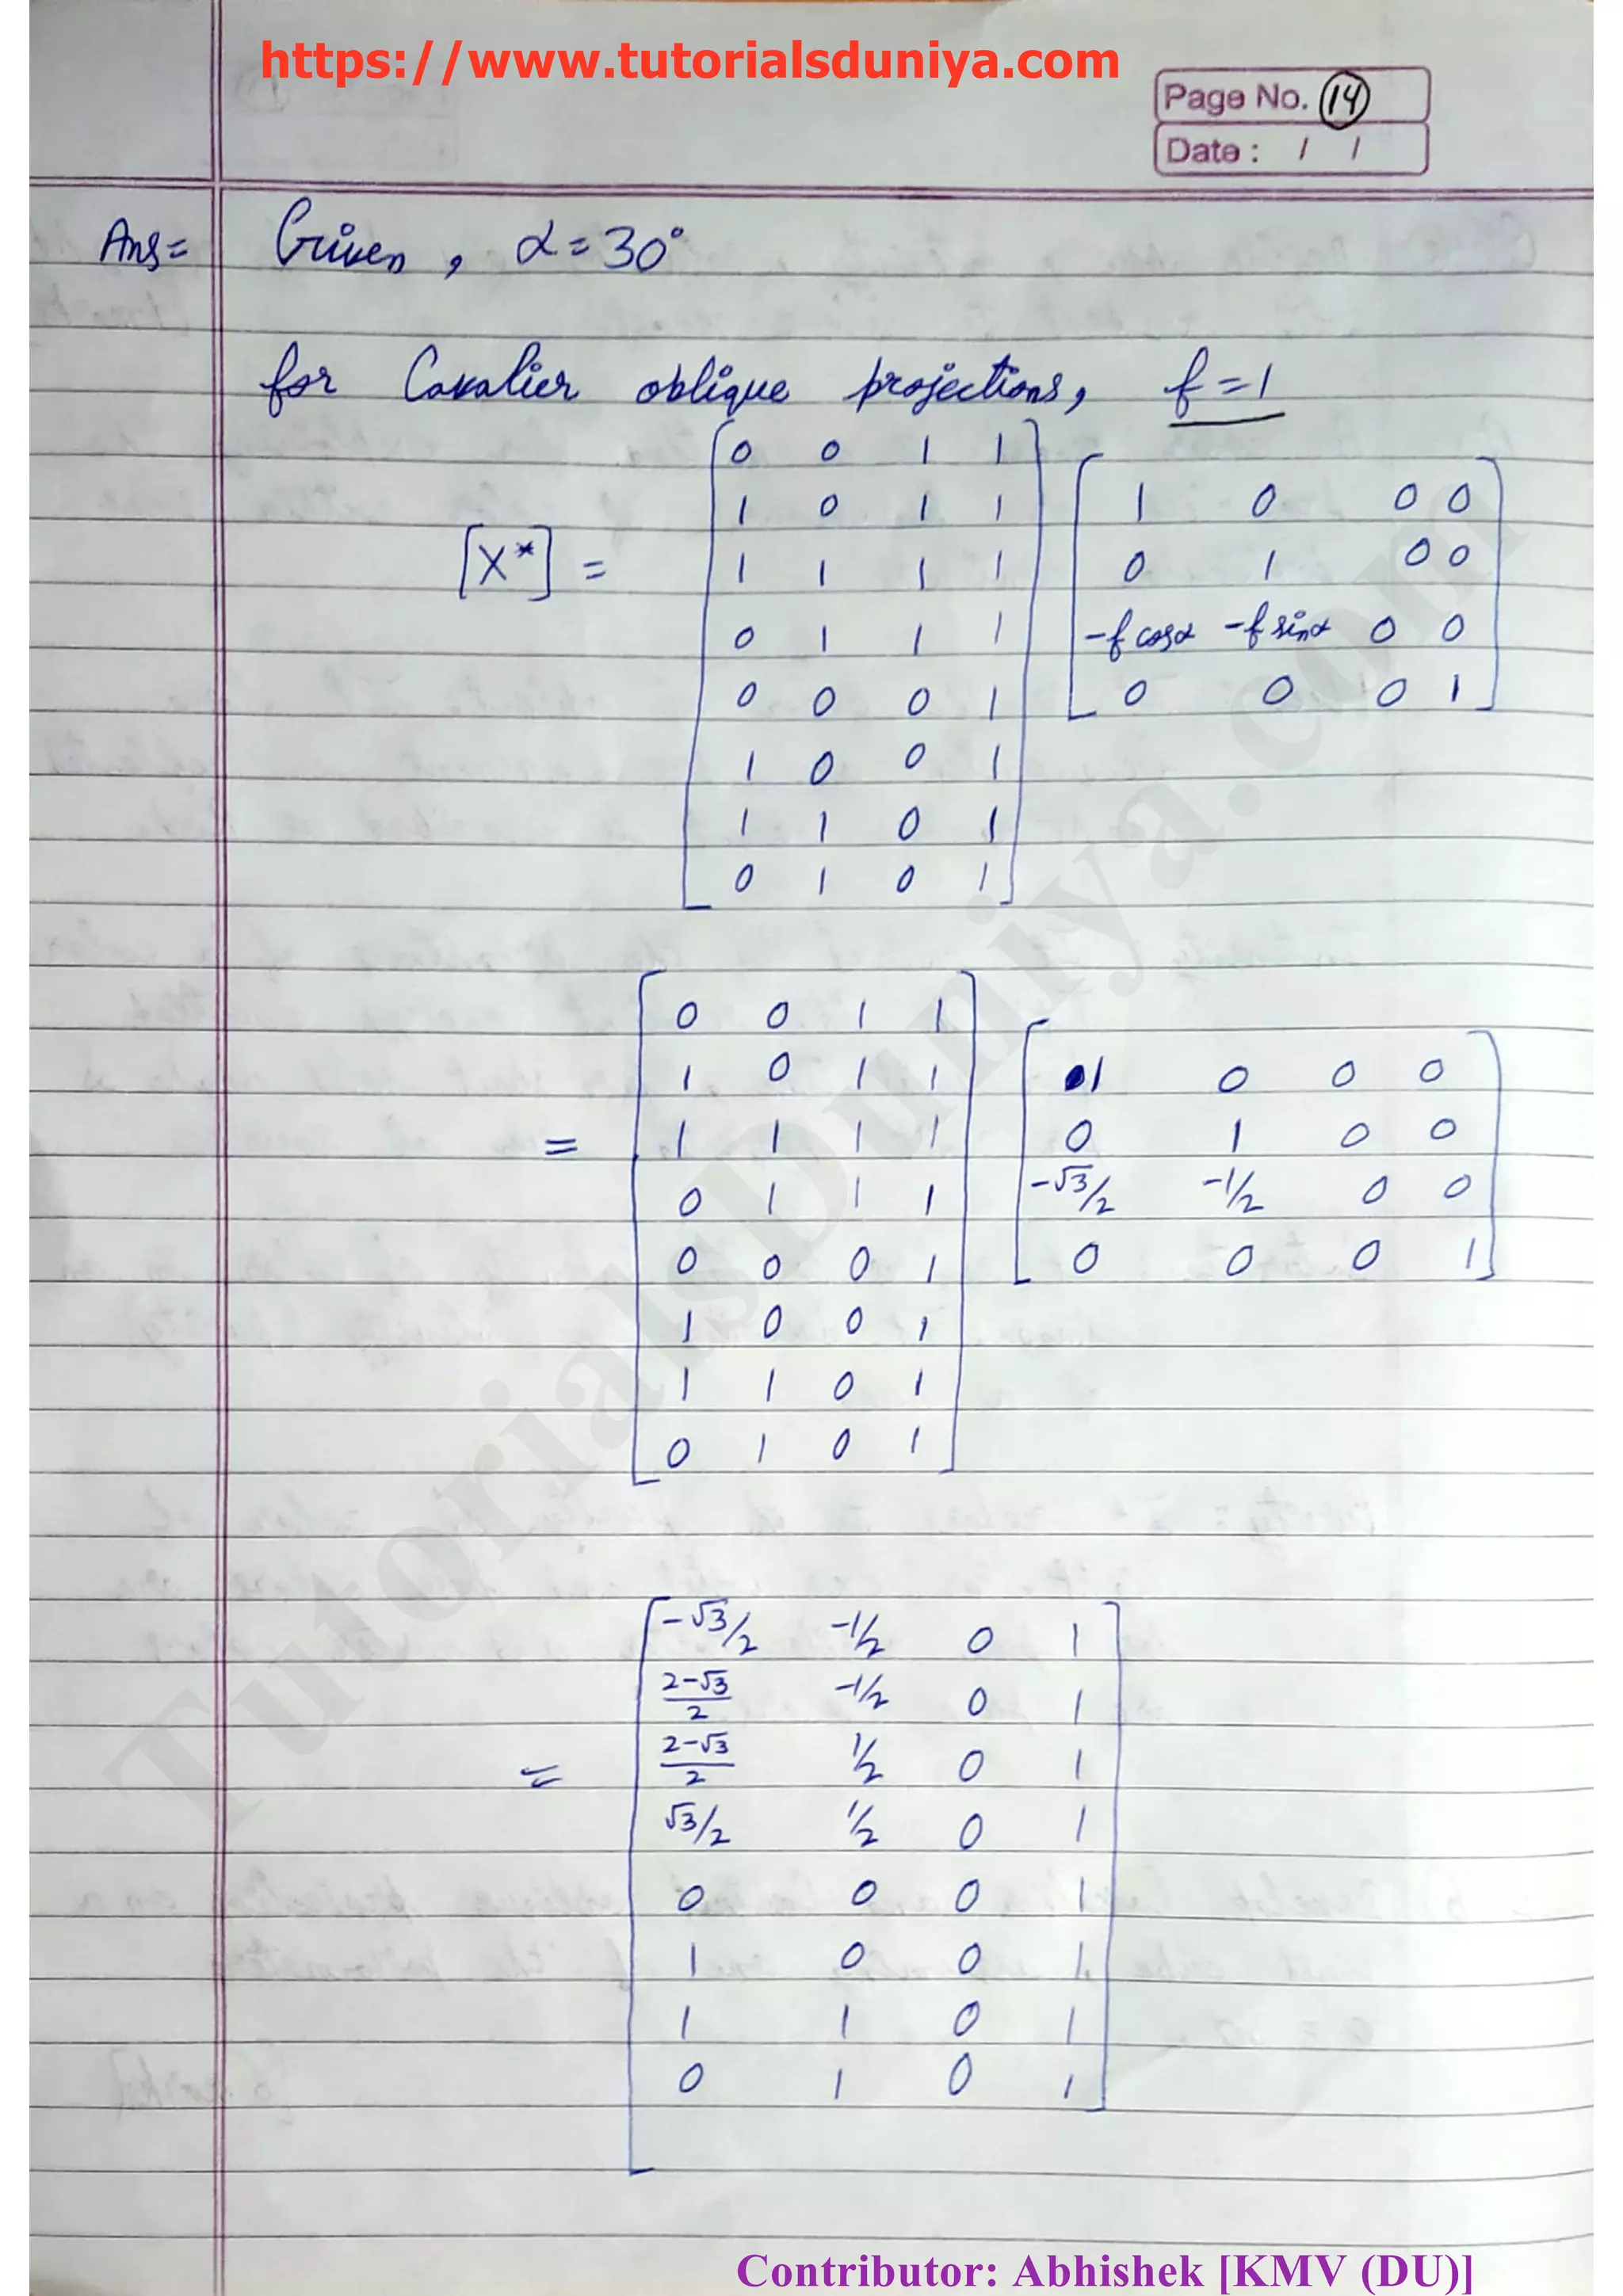 https://www.tutorialsduniya.com
Page No. 14
Date : / /
Ans= Given, α=30°
for Cavalier oblique projections, f=1
[X*] =
0 0 1 1
1 0 1 1
1 1 1 1
0 1 1 1
0 0 0 1
1 0 0 1
1 1 0 1
0 1 0 1
1 0 0 0
0 1 0 0
-f cosα -f sinα 0 0
0 0 0 1
=
0 0 1 1
1 0 1 1
1 1 1 1
0 1 1 1
0 0 0 1
1 0 0 1
1 1 0 1
0 1 0 1
1 0 0 0
0 1 0 0
-√3/2 -1/2 0 0
0 0 0 1
=
-√3/2 -1/2 0 1
2-√3/2 -1/2 0 1
2-√3/2 1/2 0 1
√3/2 1/2 0 1
0 0 0 1
1 0 0 1
1 1 0 1
0 1 0 1
TutorialsDuniya.com
Contributor: Abhishek [KMV (DU)]